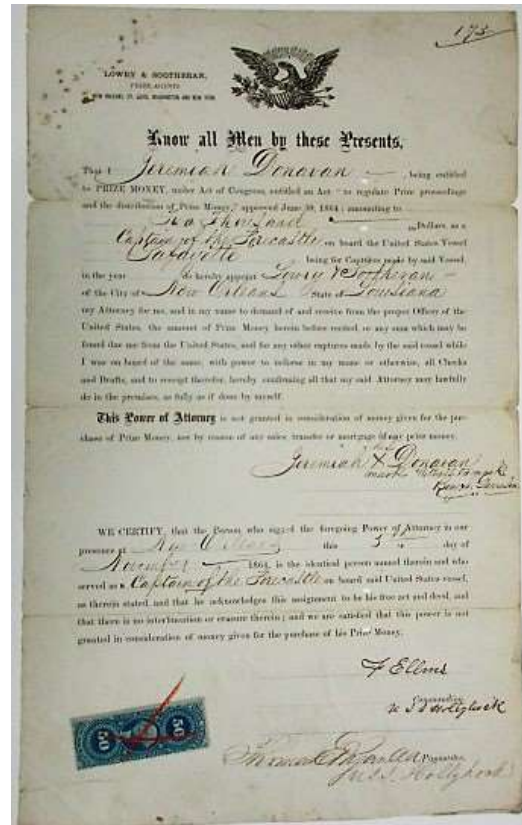 175
LOWRY & SOOTHERAN,
PRIZE AGENTS
NEW ORLEANS, ST. LOUIS, WASHINGTON AND NEW YORK
Know all Men by these Presents,
That I Jeremiah Donavan, being entitled
to PRIZE MONEY, under Act of Congress, entitled an Act "to regulate Prize proceedings
and the distribution of Prize Money," approved June 30, 1864; amounting to
Two Thousand Dollars, as a
Captain of the Forecastle on board the United States Vessel
Lafayette being for Captures made by said Vessel
in the year do hereby appoint Lowry & Sootheran
of the City of New Orleans State of Louisiana
my Attorney for me, and in my name to demand of and receive from the proper Officer of the
United States, the amount of Prize Money herein before recited, or any sum which may be
found due me from the United States, and for any other captures made by the said vessel while
I was on board of the same, with power to indorse in my name or otherwise, all Checks
and Drafts, and to receipt therefor, hereby confirming all that my said Attorney may lawfully
do in the premises, as fully as if done by myself.
This Power of Attorney is not granted in consideration of money given for the pur-
chase of Prize Money, nor by reason of any sales, transfer or mortgage of my prize money.
Jeremiah X Donavan
his
mark
WE CERTIFY, that the Person who signed the foregoing Power of Attorney in our
presence at New Orleans this 5 day of
November 1864, is the identical person named therein and who
served as a Captain of the Forecastle on board said United States vessel,
as therein stated, and that he acknowledges this assignment to be his free act and deed, and
that there is no interlineation or erasure therein; and we are satisfied that this power is not
granted in consideration of money given for the purchase of his Prize Money.
F Ellms
Commanding
U S S Hollyhock
Paymaster,
U.S.S. Hollyhock
50 50